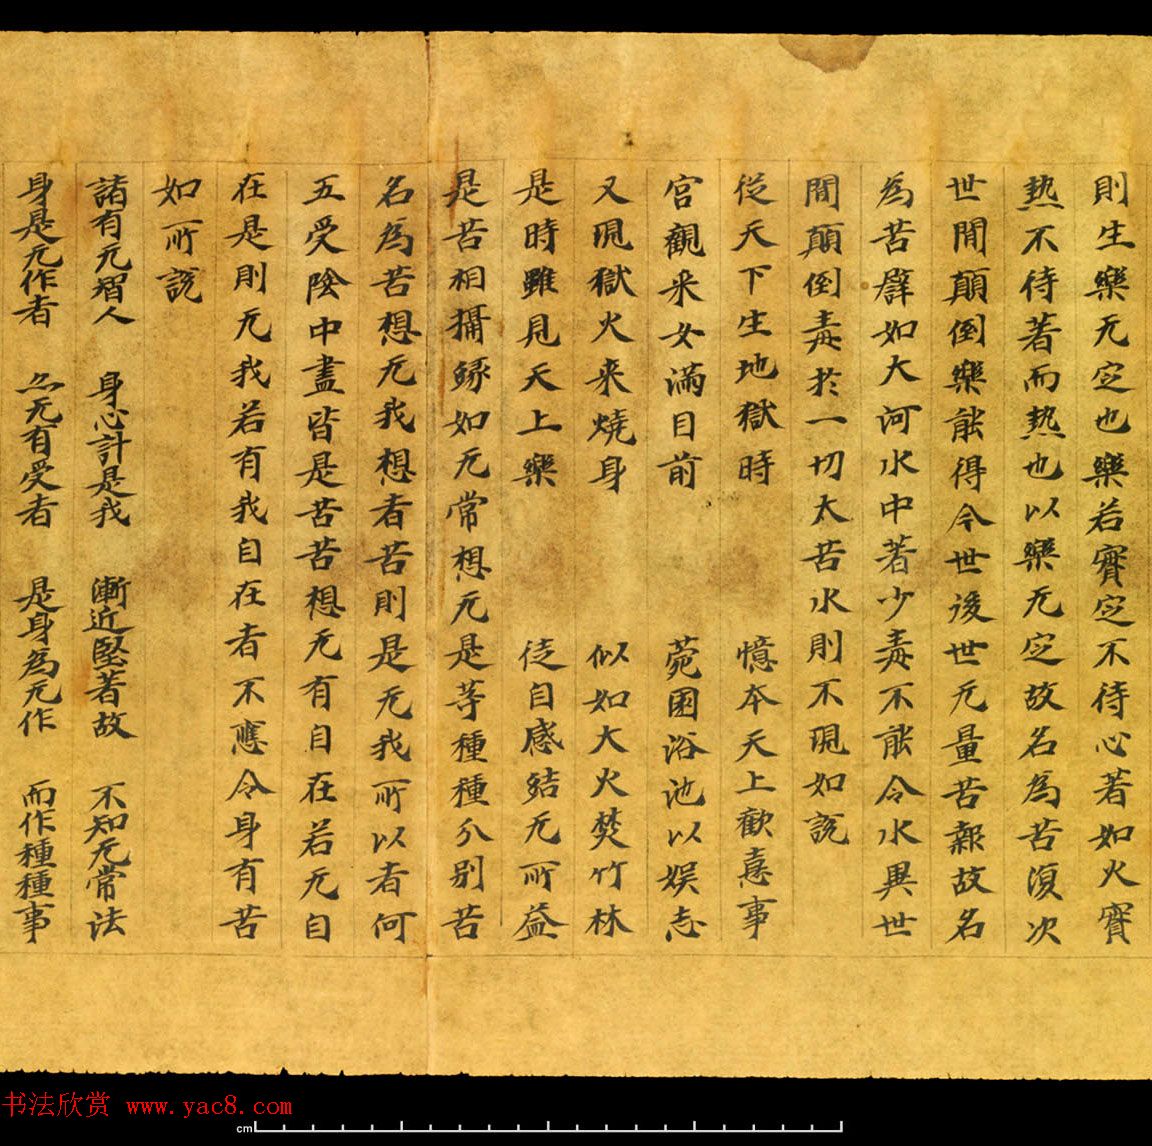 則生樂无定也樂若實定不待心著如火實
热不待著而热也以樂无定故名為苦湏次
世間顛倒樂能得今世後世无量苦報故名
為苦譬如大河水中著少毒不能令水異世
間顛倒毒於一切大苦水則不現如說
從天下生地獄時 憶本天上歡憙事
宫觀婇女滿目前 菀園浴池以娱志
又現獄火来燒身 似如大火焚竹林
是時雖見天上樂 徒自感結无所益
是苦相攝緣如无常想无是等種種分别苦
名為苦想无我想者苦則是无我所以者何
五受陰中盡皆是苦苦想无有自在若无自
在是則无我若有我自在者不應令身有苦
如所說
諸有无智人 身心計是我 漸近堅著故 不知无常法
身是无作者 亦无有受者 是身為无作 而作種種事
书法欣赏 www.yac8.com
cm